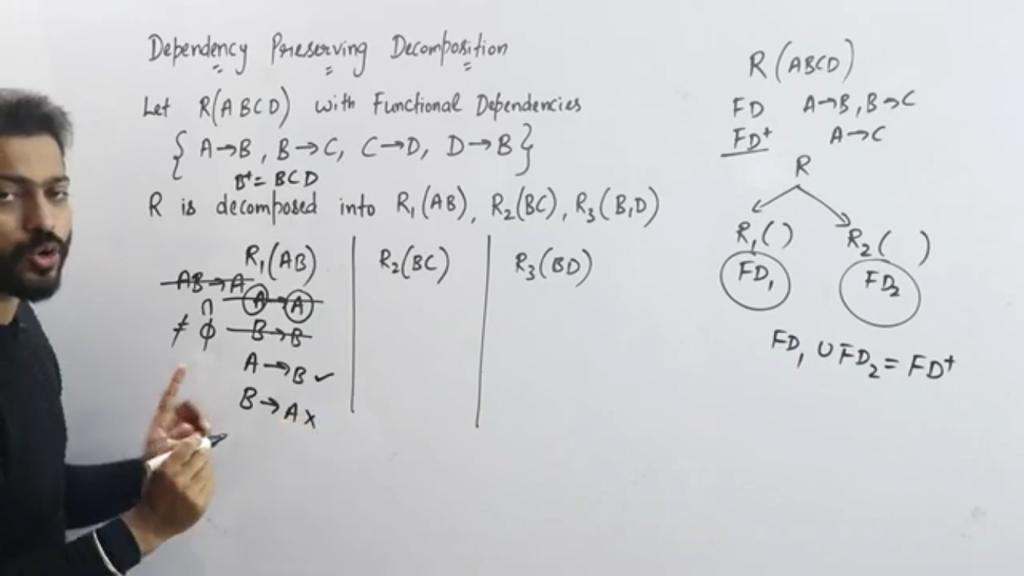 Dependency Preserving Decomposition
Let R(ABCD) with Functional Dependencies
{ A→B, B→C, C→D, D→B }
B⁺= BCD
R is decomposed into R₁(AB), R₂(BC), R₃(B,D)
R₁(AB)
AB→A
A→A
∩
≠ ϕ B→B
A→B ✓
B→A x
R₂(BC)
R₃(BD)
R(ABCD)
FD A→B, B→C
FD⁺ A→C
R
R₁( ) R₂( )
FD₁ FD₂
FD₁ ∪ FD₂ = FD⁺